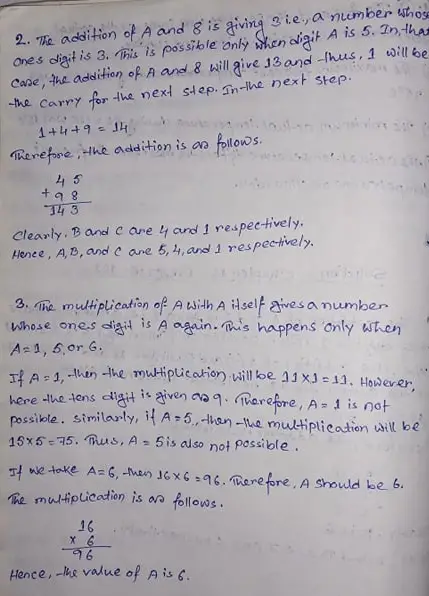 2. The addition of A and 8 is giving 3 i.e., a number whose
ones digit is 3. This is possible only when digit A is 5. In that
case, the addition of A and 8 will give 13 and thus, 1 will be
the carry for the next step. In the next step.
1+4+9 = 14
Therefore, the addition is as follows.
4 5
+ 9 8
143
Clearly. B and C are 4 and 1 respectively.
Hence, A, B, and C are 5, 4, and 1 respectively.
3. The multiplication of A with A itself gives a number
whose ones digit is A again. This happens only when
A=1, 5, or 6.
If A = 1, then the multiplication will be 11×1=11. However,
here the tens digit is given as 9. Therefore, A = 1 is not
possible. similarly, if A=5, then the multiplication will be
15×5=75. Thus, A = 5 is also not possible.
If we take A=6, then 16×6=96. Therefore, A should be 6.
The multiplication is as follows.
16
× 6
96
Hence, the value of A is 6.